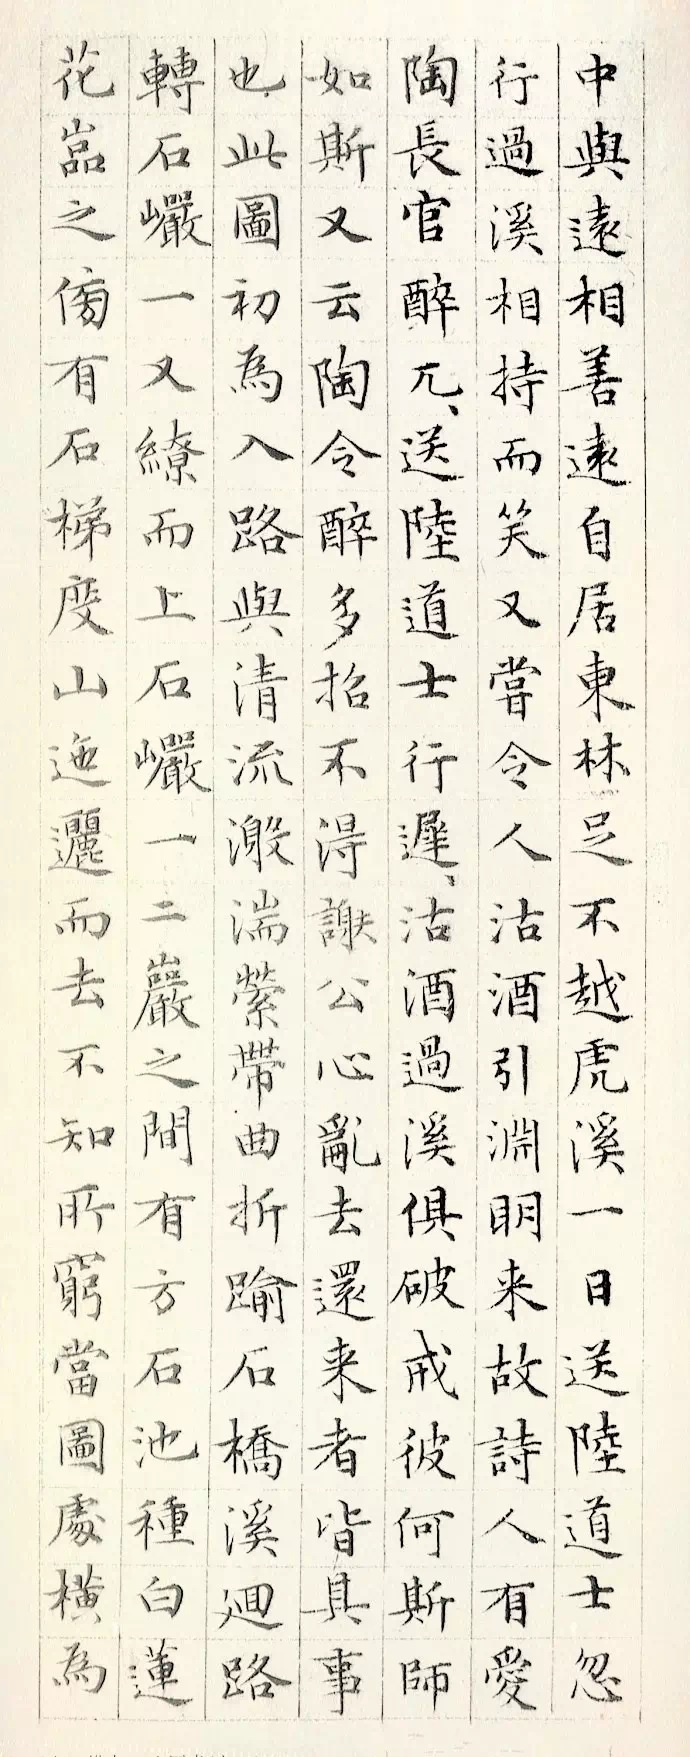 中與遠相善遠自居東林足不越虎溪一日送陸道士忽
行過溪相持而笑又嘗令人沽酒引淵明来故詩人有愛
陶長官醉兀、送陸道士行遲、沽酒過溪俱破戒彼何斯師
如斯又云陶令醉多招不得謝公心亂去還来者皆其事
也此圖初為入路與清流激湍縈帶曲折踰石橋溪廻路
轉石巗一又繚而上石巗一二巖之間有方石池種白蓮
花嵓之傍有石梯度山迤邐而去不知所窮當圖處橫為